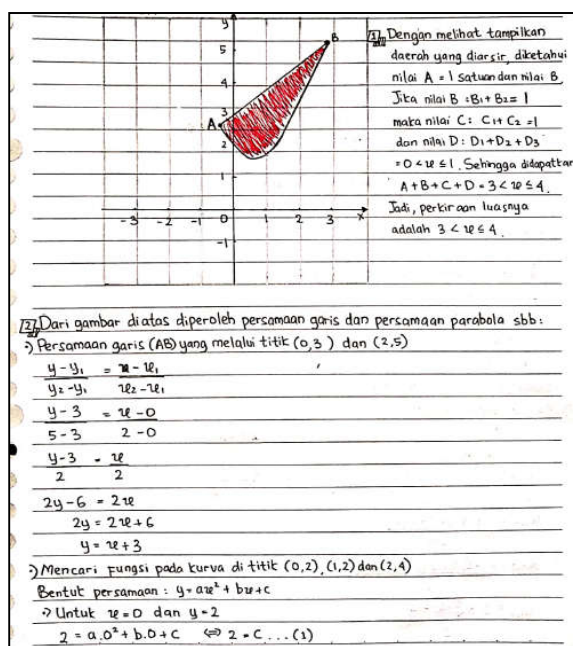 y
5
4
3
2
1
-1
-3 -2 -1 0 1 2 3 x
A
B
[1] Dengan melihat tampilkan
daerah yang diarsir, diketahui
nilai A = 1 satuan dan nilai B
Jika nilai B : B1 + B2 = 1
maka nilai C : C1 + C2 = 1
dan nilai D : D1 + D2 + D3
= 0 < x ≤ 1. Sehingga didapatkan
A + B + C + D = 3 < x ≤ 4.
Jadi, perkiraan luasnya
adalah 3 < x ≤ 4.
[2] Dari gambar diatas diperoleh persamaan garis dan persamaan parabola sbb:
·) Persamaan garis (AB) yang melalui titik (0,3) dan (2,5)
y - y1 / y2 - y1 = x - x1 / x2 - x1
y - 3 / 5 - 3 = x - 0 / 2 - 0
y - 3 / 2 = x / 2
2y - 6 = 2x
2y = 2x + 6
y = x + 3
·) Mencari fungsi pada kurva di titik (0,2), (1,2) dan (2,4)
Bentuk persamaan : y = ax² + bx + c
·) Untuk x = 0 dan y = 2
2 = a.0² + b.0 + c ⇔ 2 = c ... (1)